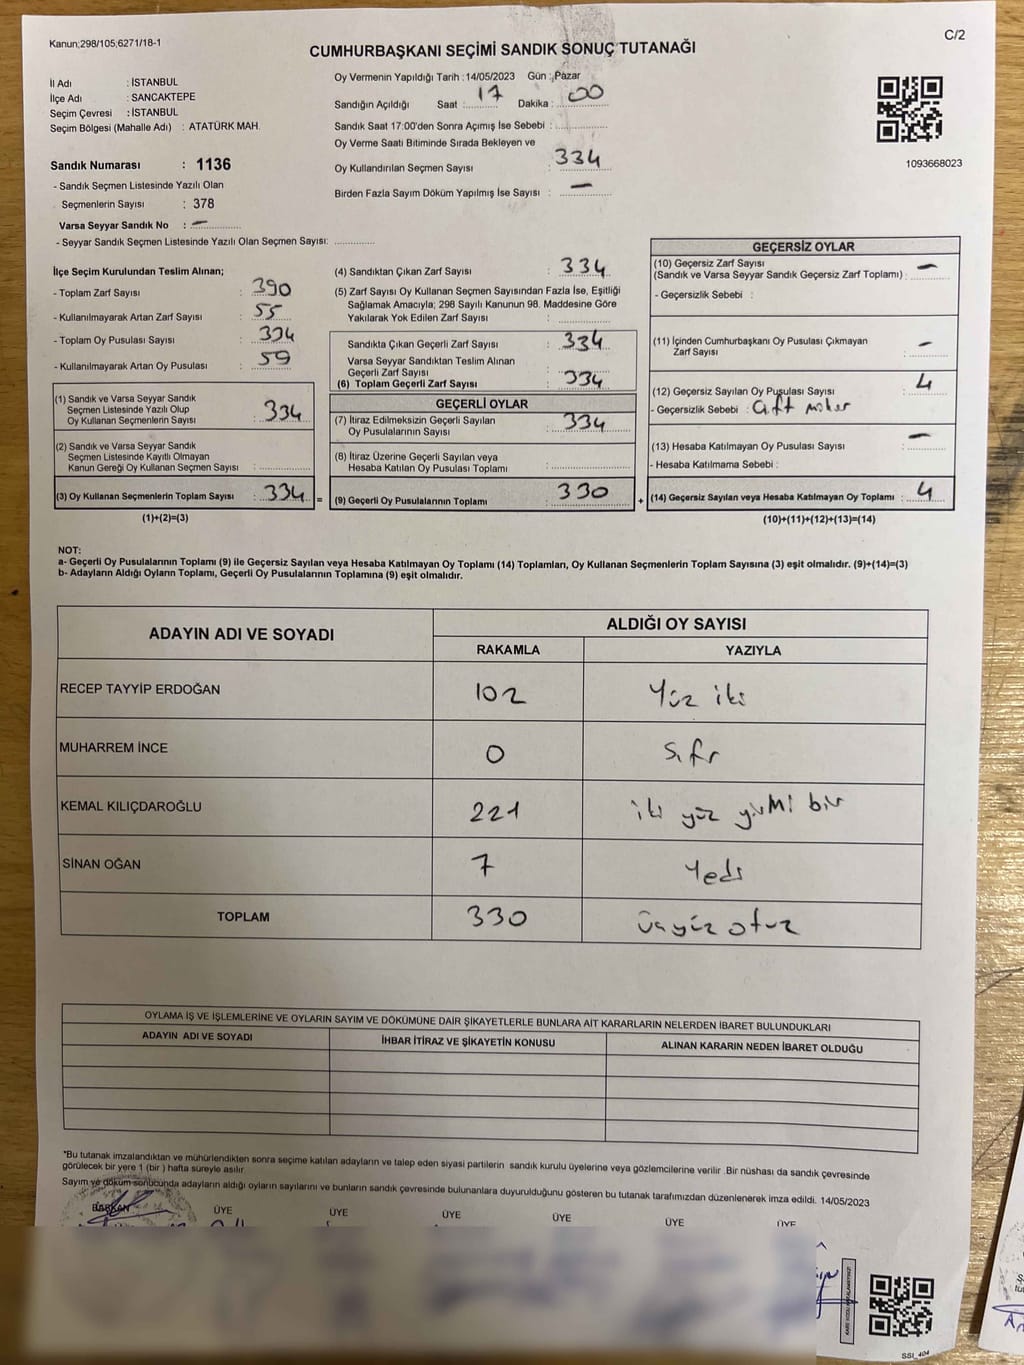 Kanun;298/105;6271/18-1
C/2
CUMHURBAŞKANI SEÇİMİ SANDIK SONUÇ TUTANAĞI
İl Adı : İSTANBUL
İlçe Adı : SANCAKTEPE
Seçim Çevresi : İSTANBUL
Seçim Bölgesi (Mahalle Adı) : ATATÜRK MAH.
Sandık Numarası : 1136
- Sandık Seçmen Listesinde Yazılı Olan
Seçmenlerin Sayısı : 378
Varsa Seyyar Sandık No : —
- Seyyar Sandık Seçmen Listesinde Yazılı Olan Seçmen Sayısı:
Oy Vermenin Yapıldığı Tarih : 14/05/2023 Gün : Pazar
Sandığın Açıldığı Saat : 17 Dakika : 00
Sandık Saat 17:00'den Sonra Açımış İse Sebebi :
Oy Verme Saati Bitiminde Sırada Bekleyen ve
Oy Kullandırılan Seçmen Sayısı : 334
Birden Fazla Sayım Döküm Yapılmış İse Sayısı : —
1093668023
İlçe Seçim Kurulundan Teslim Alınan;
- Toplam Zarf Sayısı : 390
- Kullanılmayarak Artan Zarf Sayısı : 55
- Toplam Oy Pusulası Sayısı : 334
- Kullanılmayarak Artan Oy Pusulası : 59
(1) Sandık ve Varsa Seyyar Sandık
Seçmen Listesinde Yazılı Olup
Oy Kullanan Seçmenlerin Sayısı : 334
(2) Sandık ve Varsa Seyyar Sandık
Seçmen Listesinde Kayıtlı Olmayan
Kanun Gereği Oy Kullanan Seçmen Sayısı :
(3) Oy Kullanan Seçmenlerin Toplam Sayısı : 334 =
(1)+(2)=(3)
(4) Sandıktan Çıkan Zarf Sayısı : 334
(5) Zarf Sayısı Oy Kullanan Seçmen Sayısından Fazla İse, Eşitliği
Sağlamak Amacıyla; 298 Sayılı Kanunun 98. Maddesine Göre
Yakılarak Yok Edilen Zarf Sayısı :
Sandıkta Çıkan Geçerli Zarf Sayısı : 334
Varsa Seyyar Sandıktan Teslim Alınan
Geçerli Zarf Sayısı
(6) Toplam Geçerli Zarf Sayısı : 334
GEÇERLİ OYLAR
(7) İtiraz Edilmeksizin Geçerli Sayılan
Oy Pusulalarının Sayısı : 334
(8) İtiraz Üzerine Geçerli Sayılan veya
Hesaba Katılan Oy Pusulası Toplamı :
(9) Geçerli Oy Pusulalarının Toplamı : 330 +
GEÇERSİZ OYLAR
(10) Geçersiz Zarf Sayısı
(Sandık ve Varsa Seyyar Sandık Geçersiz Zarf Toplamı) : —
- Geçersizlik Sebebi :
(11) İçinden Cumhurbaşkanı Oy Pusulası Çıkmayan
Zarf Sayısı : —
(12) Geçersiz Sayılan Oy Pusulası Sayısı : 4
- Geçersizlik Sebebi : Çift mühür
(13) Hesaba Katılmayan Oy Pusulası Sayısı : —
- Hesaba Katılmama Sebebi :
(14) Geçersiz Sayılan veya Hesaba Katılmayan Oy Toplamı : 4
(10)+(11)+(12)+(13)=(14)
NOT:
a- Geçerli Oy Pusulalarının Toplamı (9) ile Geçersiz Sayılan veya Hesaba Katılmayan Oy Toplamı (14) Toplamları, Oy Kullanan Seçmenlerin Toplam Sayısına (3) eşit olmalıdır. (9)+(14)=(3)
b- Adayların Aldığı Oyların Toplamı, Geçerli Oy Pusulalarının Toplamına (9) eşit olmalıdır.
ADAYIN ADI VE SOYADI
ALDIĞI OY SAYISI
RAKAMLA YAZIYLA
RECEP TAYYİP ERDOĞAN 102 Yüz iki
MUHARREM İNCE 0 Sıfır
KEMAL KILIÇDAROĞLU 221 iki yüz yirmi bir
SİNAN OĞAN 7 Yedi
TOPLAM 330 üçyüz otuz
OYLAMA İŞ VE İŞLEMLERİNE VE OYLARIN SAYIM VE DÖKÜMÜNE DAİR ŞİKAYETLERLE BUNLARA AİT KARARLARIN NELERDEN İBARET BULUNDUKLARI
ADAYIN ADI VE SOYADI İHBAR İTİRAZ VE ŞİKAYETİN KONUSU ALINAN KARARIN NEDEN İBARET OLDUĞU
*Bu tutanak imzalandıktan ve mühürlendikten sonra seçime katılan adayların ve talep eden siyasi partilerin sandık kurulu üyelerine veya gözlemcilerine verilir .Bir nüshası da sandık çevresinde
görülecek bir yere 1 (bir ) hafta süreyle asılır.
Sayım ve döküm sonucunda adayların aldığı oyların sayılarını ve bunların sandık çevresinde bulunanlara duyurulduğunu gösteren bu tutanak tarafımızdan düzenlenerek imza edildi. 14/05/2023
BAŞKAN ÜYE ÜYE ÜYE ÜYE ÜYE ÜYE
SSI_404